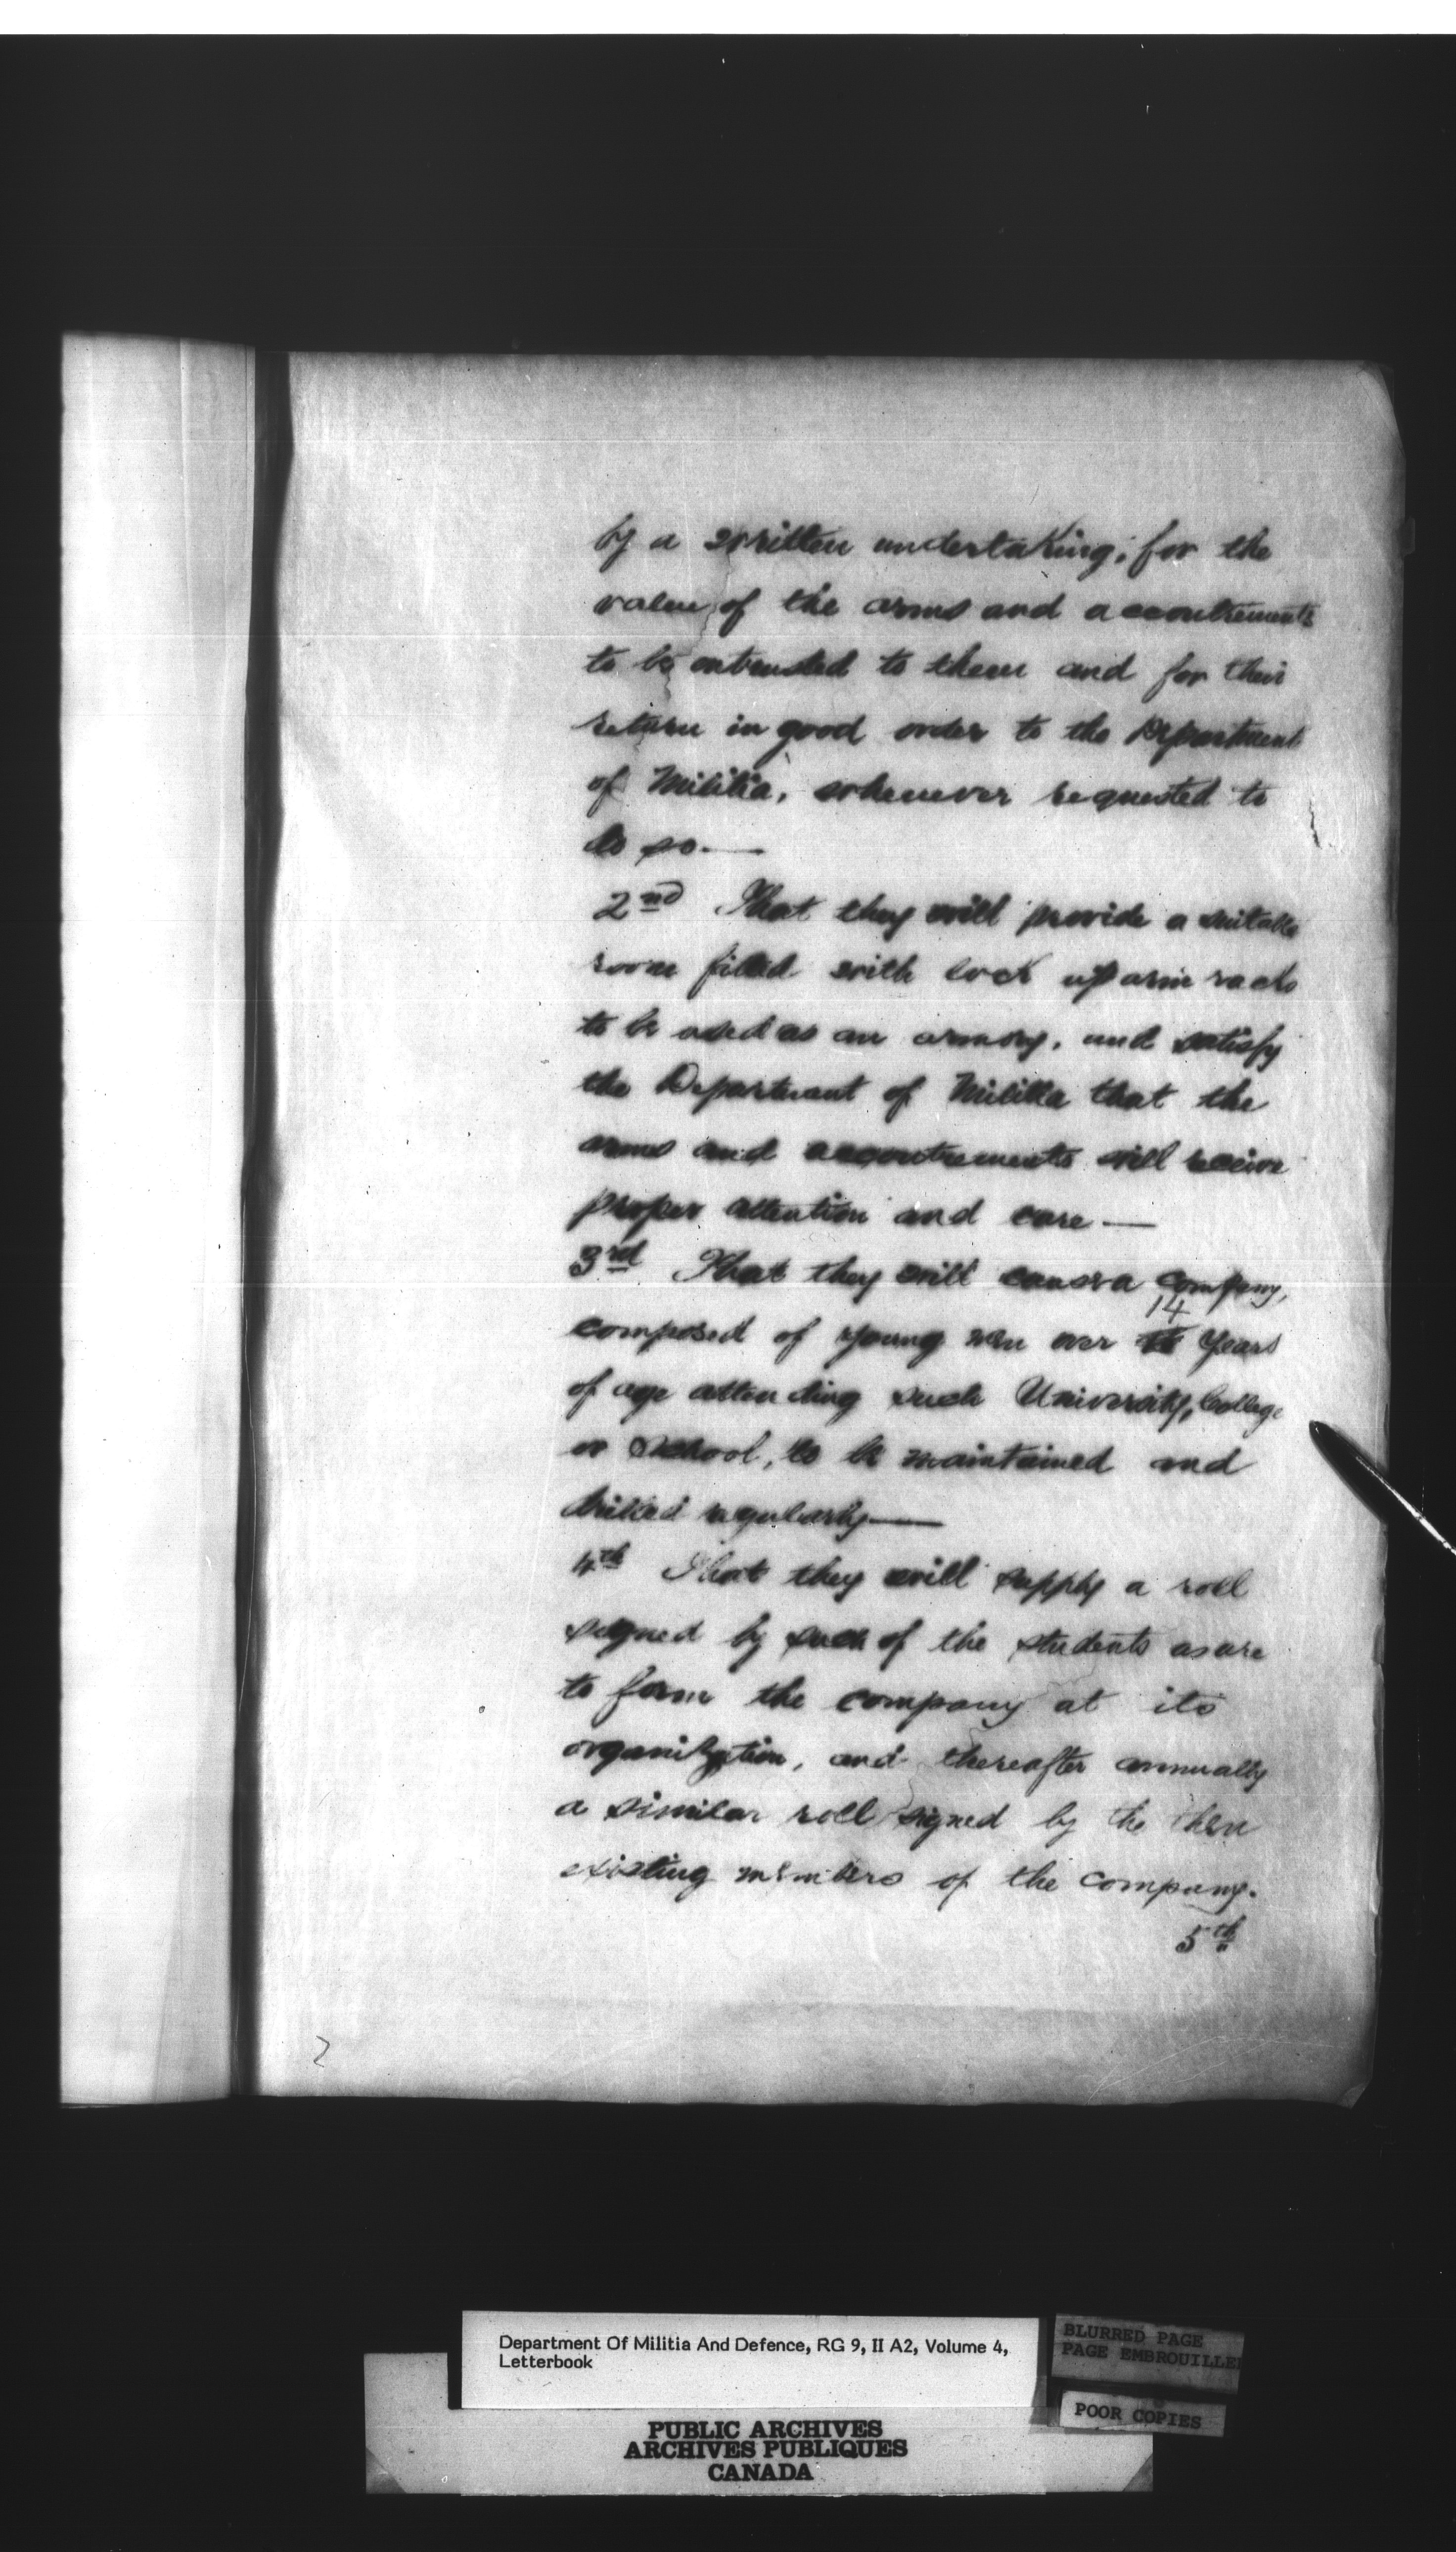 by a written undertaking, for the
value of the arms and accoutrements
to be entrusted to them and for their
return in good order to the Department
of Militia, whenever requested to
do so.—
2nd That they will provide a suitable
room fitted with lock up arm racks
to be used as an armory, and satisfy
the Department of Militia that the
arms and accoutrements will receive
proper attention and care—
3rd That they will cause a company,
14
composed of young men over Years
of age attending such University, College
or School, to be maintained and
drilled regularly—
4th That they will supply a roll
signed by such of the students as are
to form the company at its
organization, and thereafter annually
a similar roll signed by the then
existing members of the company.
5th
2
Department Of Militia And Defence, RG 9, II A2, Volume 4,
Letterbook
BLURRED PAGE
PAGE EMBROUILLE
POOR COPIES
PUBLIC ARCHIVES
ARCHIVES PUBLIQUES
CANADA